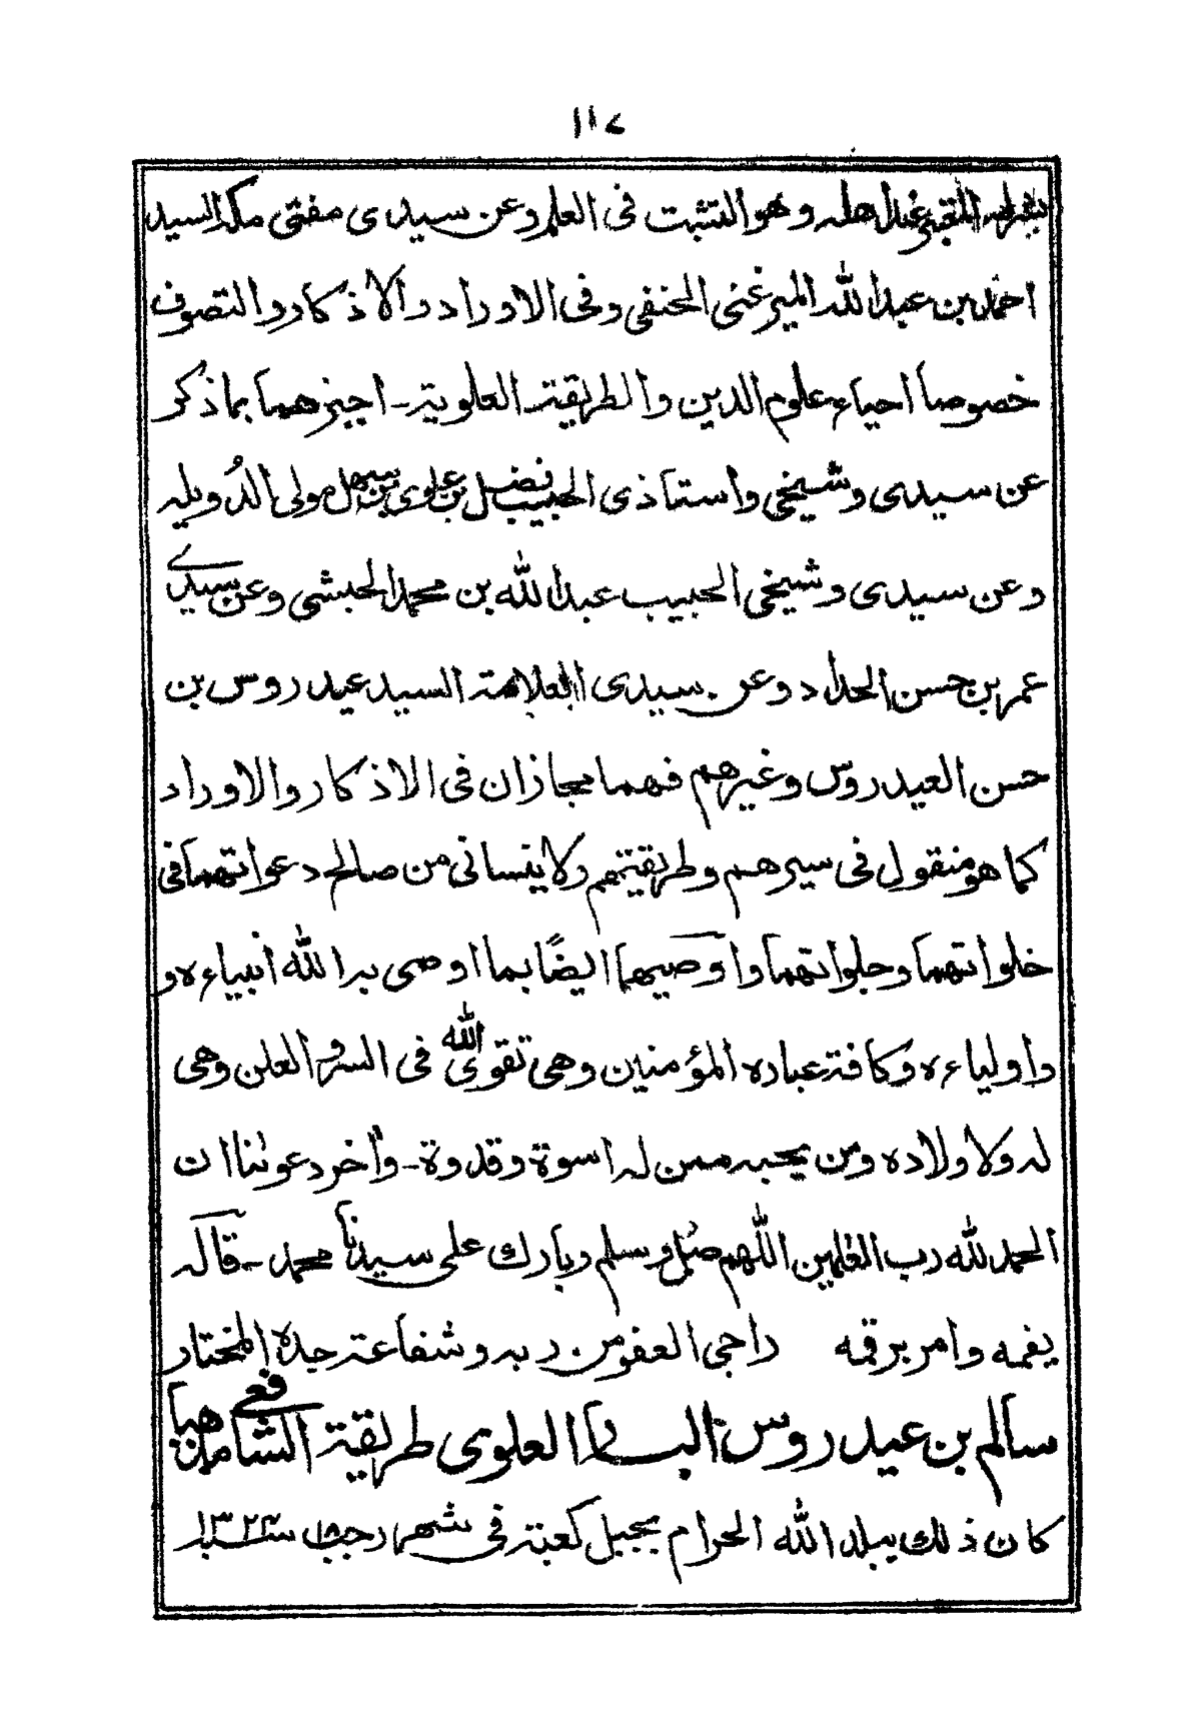 ١١٧
بشرطه المعتبر عند اهله وهو التثبت فى العلم وعن سيدى مفتى مكه السيد
احمد بن عبدالله الميرغنى الحنفى وفى الاوراد والاذكار والتصوف
خصوصاً احياء علوم الدين والطريقة العلوية ـ اجيزهما بما ذكر
عن سيدى وشيخى واستاذى الحبيب فضل بن علوى بن سهل مولى الدُويله
وعن سيدى وشيخى الحبيب عبدالله بن محمد الحبشى وعن سيدي
عمر بن حسن الحداد وعن سيدى العلامة السيد عيدروس بن
حسن العيدروس وغيرهم فهما مجازان فى الاذكار والاوراد
كما هو منقول فى سيرهم وطريقتهم ولاينسانى من صالح دعواتهما فى
خلواتهما وجلواتهما واوصيهما ايضًا بما اوصى به الله انبياءه و
واولياءه وكافة عباده المؤمنين وهى تقوى الله فى السر والعلن وهى
له ولاولاده ومن يحبه ممن له اسوة وقدوة ـ وأخر دعوٰنا ان
الحمد لله رب العٰلمين اللهم صل وسلم وبارك على سيدنا محمد ـ قاله
بفمه وامر برقمه راجى العفو من ربه وشفاعة جده المختار
سالم بن عيدروس البار العلوى طريقة الشافعى مذهبا
كان ذلك ببلد الله الحرام بجبل كعبة فى شهر رجب ١٨ سنة ١٣٢٤